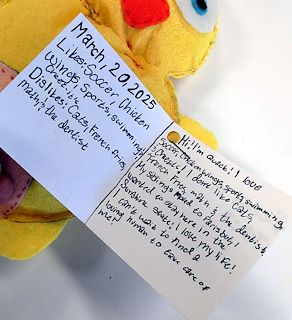 March, 20, 2025
Likes: Soccer, Chicken
Wings, Sports, swimming,
Dislikes: Cats, French fries,
math, & the dentist
Hi! I'm Quack! I love
Soccer, chicken wings, sports, swimming,
I don't like Cats,
French Fries, math, & the dentist.
My siblings moved to Paris, but
I wanted to stay here in the
Sunshine state. I love my life!
I can't wait to find a
loving human to take care of
me!